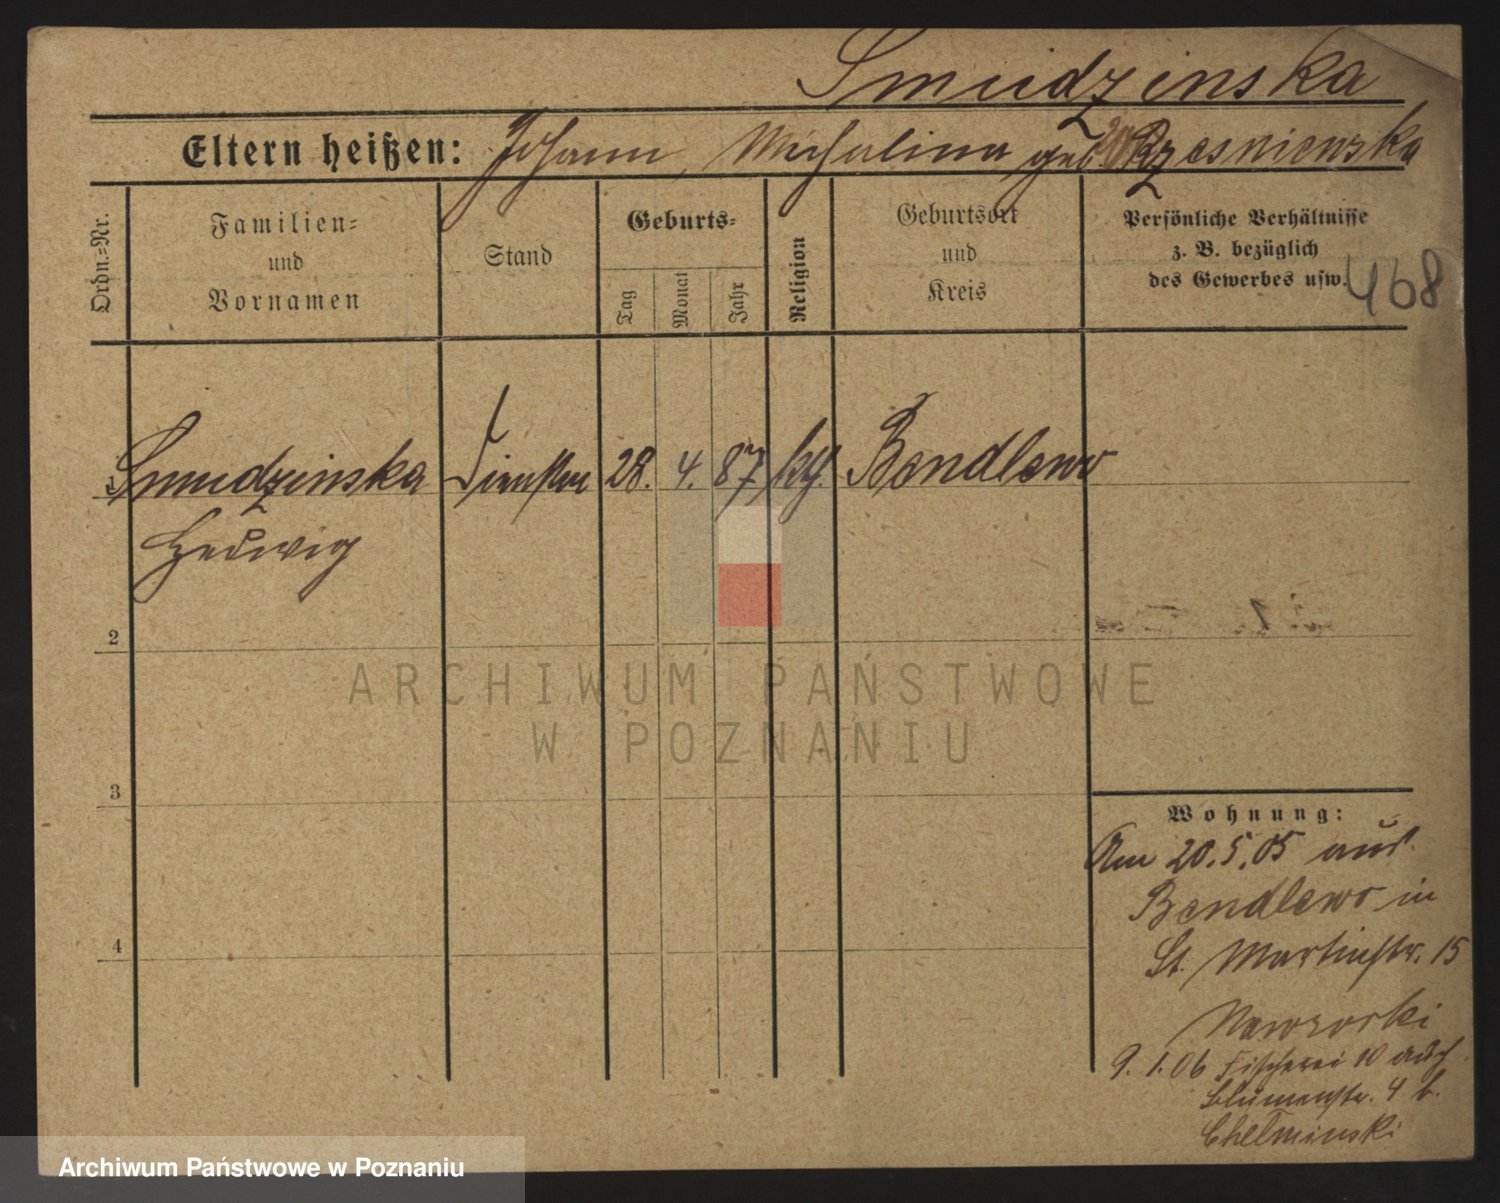 Smudzinska
Eltern heißen: Johann, Michalina geb. Rzesniewska
Ordn.=Nr.
Familien=
und
Vornamen
Stand
Geburts=
Tag
Monat
Jahr
Religion
Geburtsort
und
Kreis
Persönliche Verhältnisse
z. B. bezüglich
des Gewerbes usw.
468
1 Smudzinska 28. 4. 87 Bendlewo
Hedwig
2
3
4
Wohnung:
Am 20.5.05 aus
Bendlewo in
St. Martinstr. 15
Naworski
9. 1. 06 Fischerei 10 auch
Blumenstr. 4 b.
Chelminski
ARCHIWUM PAŃSTWOWE
W POZNANIU
Archiwum Państwowe w Poznaniu